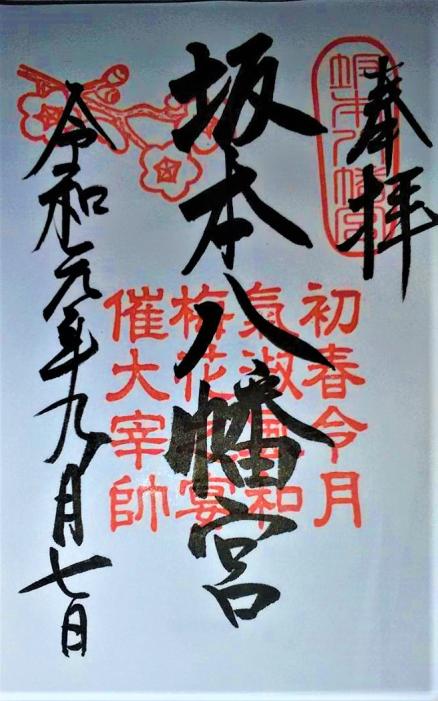 奉拝
坂本八幡宮
初春令月
氣淑風和
梅花の宴
催大宰帥
坂本八幡宮
令和元年九月七日